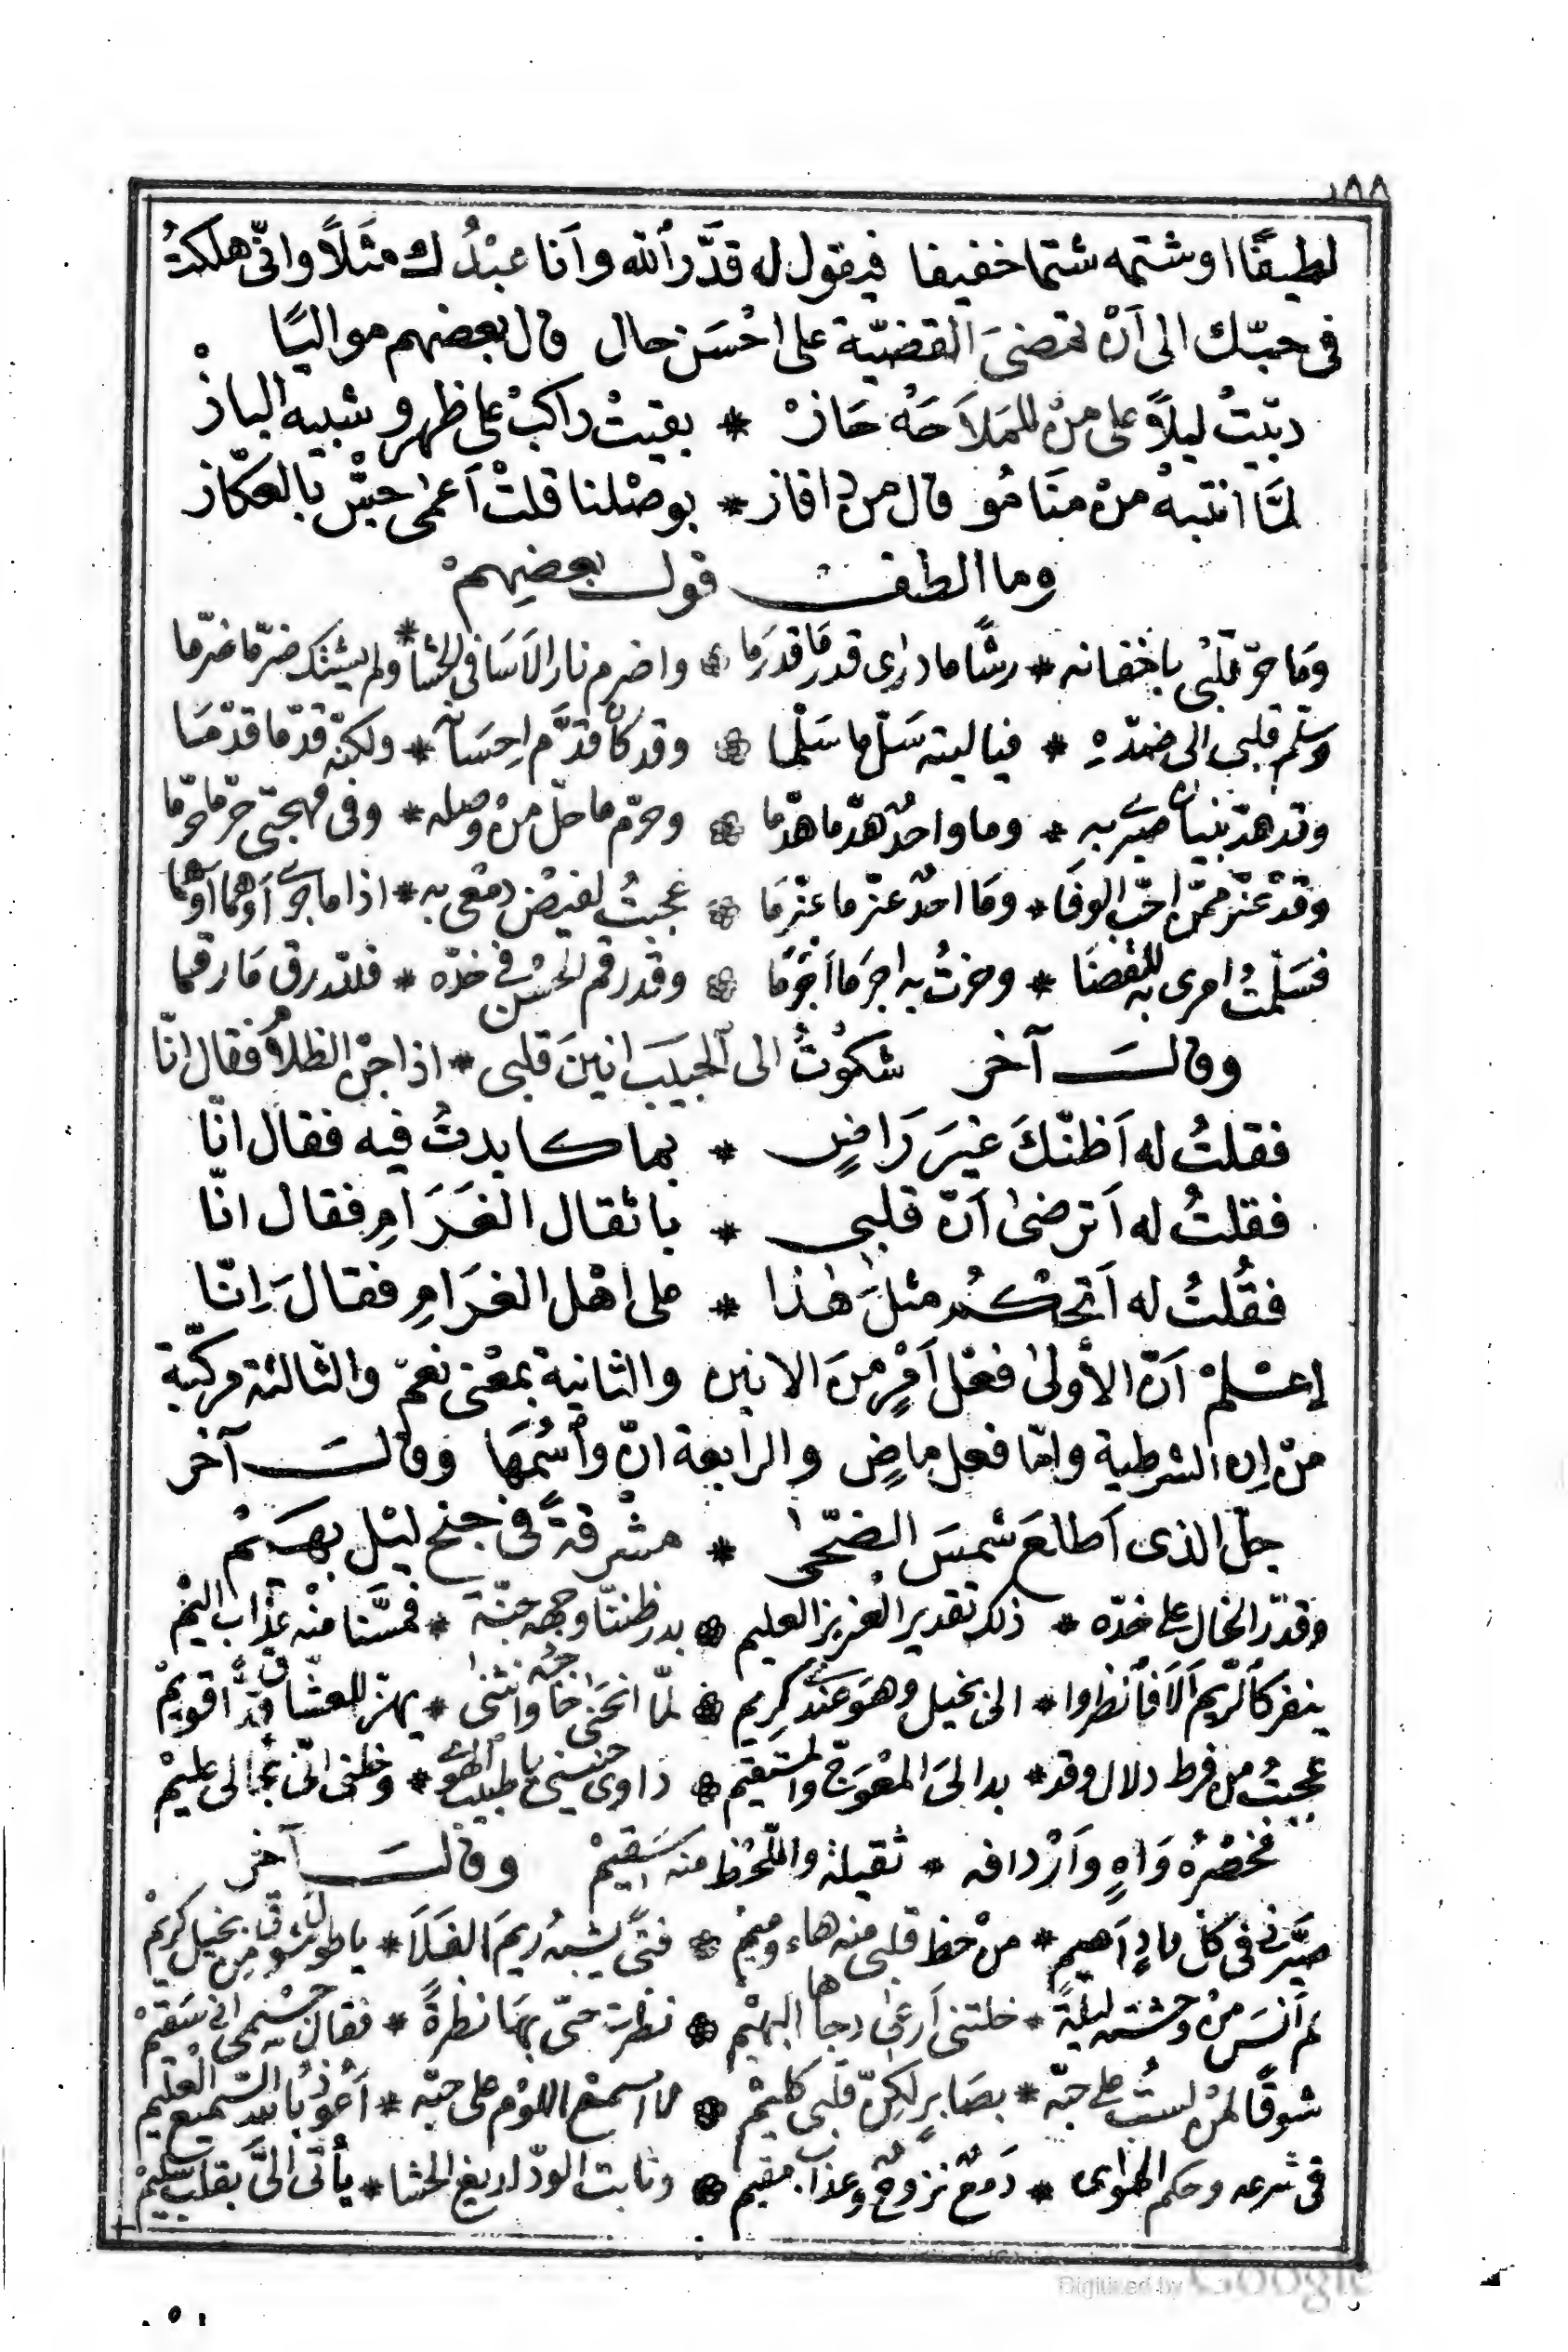 ١٨٨
لطيفًا اوشتمه شتما خفيفا فيقول له قدَّر ٱلله واَنا عبْدُك مثَلاً وانّى هلكتُ
فى حبّك الى اَنْ تمضىَ القضيّة على احْسَن حال قال بعضهم مواليًا
دبّيتُ ليلاً على منْ للمَلاَحَهْ حَازْ * بقيتْ راكبْ على ظهرو شبيه البازْ
لمَّا انتبهْ منْ منَامُو قال من دا فاز * بوصْلنا قلتْ اَعمٰى حبّش بالعكّاز
وما الطف قول بعضهمْ
وَما حرّ قلبى باخفانه * رشًا ما درٰى قدرمَا قدرَما واضرم نار الاَسَا فى الحشا * ولم يشتك ضرّما ضرّما
وسلّم قلبى الى ضدّهِ * فيا ليته سَلّ ما سَلّما وقد كانْ قدَّم اِحسَانه * ولكنّه قدّما قدّمَا
وقد هدّ بنيان صبرى به * وما واحدٌ هدّما هدّما وحرّم ما حلّ منْ وصله * وفى مهجتى حرّما حرّما
وقدْ عنّز ممّن احبّ الوفَا * ومَا احدٌ عنّز ما عنّزمَا عجبتُ لفيضْ دمعى به * اذا ما جرٰى اَوْهما اَوْهما
فسَلّمتُ امرى به للقضَا * وحزتُ به اجرَ ما اَجْرمَا وقد رقم الحُسْن فى خدّه * فللّه رق مَا رقما
وقالَ آخر شكوْتُ الى ٱلحبيَب انينَ قلبى * اذا جنّ الظلامُ فقال انّا
فقلتُ له اَظنّكَ غيرَ رَاضٍ * بما كابدتُ فيه فقال انّا
فقلتُ له اَترضىٰ اَنّ قلبى * باثقال الغَرَامِ فقال انّا
فقُلتُ له اَتحْكمُ مثلَ هٰذا * على اهْل الغرَامِ فقالَ اِنّا
اِعْلمْ اَنّ الأُولىٰ فعْل اَمْرٍ منَ الانين والثانية بمعْنى نعَمْ والثالثة مركّبة
منْ اِن الشرطية وانّا فعل ماضٍ والرابعة انّ وٱسْمُهَا وقالَ آخر
جلّ الذى اَطلعَ شمسَ الضحٰى * مشْرقةً فى جنح ليْل بهيَمْ
وقدّر الخال على خدّه * ذلك تقدير العزيز العليم بدر ظننّا وجهه جنّة * فمسَّنا منْه عذاب اليمْ
ينفر كٱلريم اَلاَ فٱنظروا * الى بخيل وهوَ عندى كريم لمّا انحنى حاجبُه وانثنى * يهزّ للعشّاق قدًّا قويمْ
عجبتُ من فرط دلال وقد * بدا الىَ المعْوَجّ والمستقيم داوى حنينى يا طبيب الهوى * وخلنى انّى بحالى عليمْ
فخصْرُهُ وَاهٍ وَاَرْدافه * ثقيلة واللّحْظ منه سَقيمْ وقالَ آخر
صيَّرنى فى كلّ وادٍ اَهيم * منْ حظ قلبى منه هاء وميمْ فتًى يشبهُ ريمَ الفَلاَ * يا طول شوقى منْ بخيل كريمْ
لم اَنسَ منْ وحْشته ليلةً * خلتنى اَرعٰى دجاها البهيْم نظرت حتّى بهَا نظرةً * فقال جسْمى انى سَقيمْ
شوقًا لمنْ لستُ على حبّه * بصَابرٍ لكنّ قلبى كليمْ لا اسمعْ اللوْم على حبّه * اَعُوذُ بالله السميع العليم
فى شرعه وحكم الهوٰى * دَمعٌ نزوحٌ وعذابٌ مقيم وثابت الودّ اريغ الحشا * يأتى الىَّ بقلب سليمْ